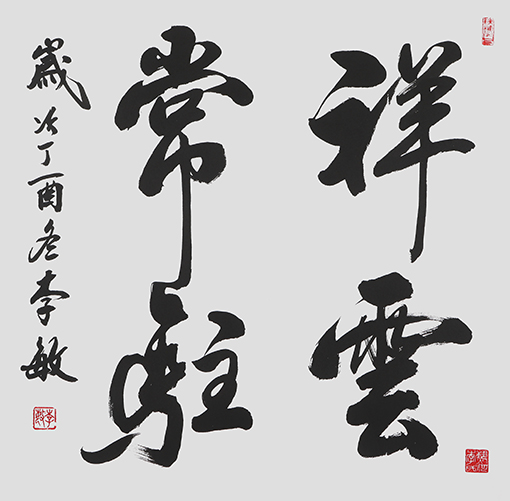 祥雲
常駐
歲次丁酉冬李敏